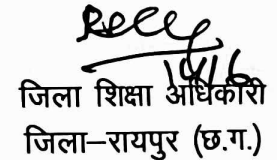 जिला शिक्षा अधिकारी
जिला–रायपुर (छ.ग.)